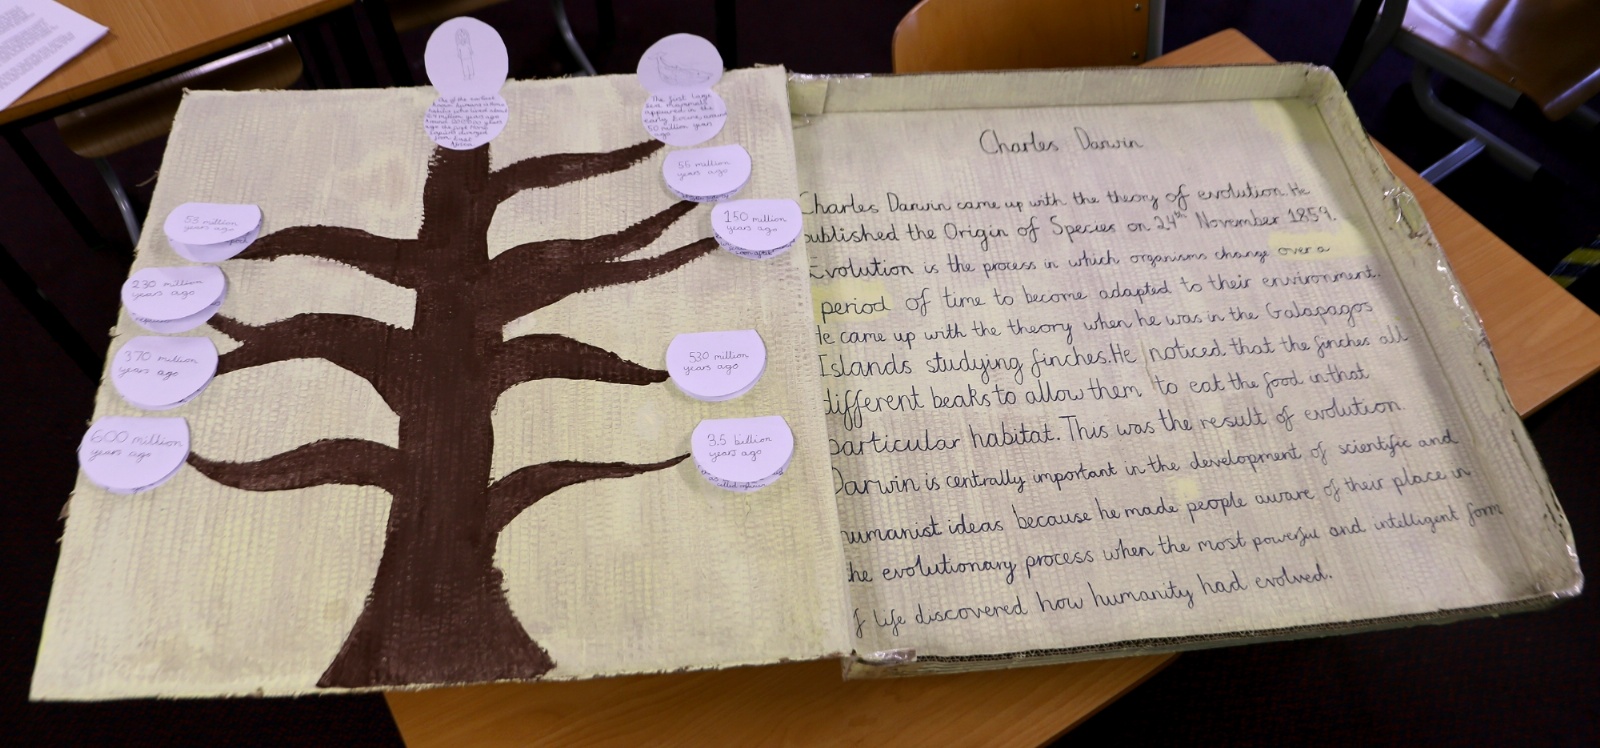 The first large
sea mammals
appeared in the
early Eocene, around
50 million years
ago
55 million
years ago
150 million
years ago
530 million
years ago
3.5 billion
years ago
53 million
years ago
230 million
years ago
370 million
years ago
600 million
years ago
Charles Darwin
Charles Darwin came up with the theory of evolution. He
ublished the Origin of Species on 24th November 1859.
Evolution is the process in which organisms change over a
period of time to become adapted to their environment.
He came up with the theory when he was in the Galapagos
Islands studying finches. He noticed that the finches all
different beaks to allow them to eat the food in that
particular habitat. This was the result of evolution.
Darwin is centrally important in the development of scientific and
humanist ideas because he made people aware of their place in
the evolutionary process when the most powerful and intelligent form
of life discovered how humanity had evolved.